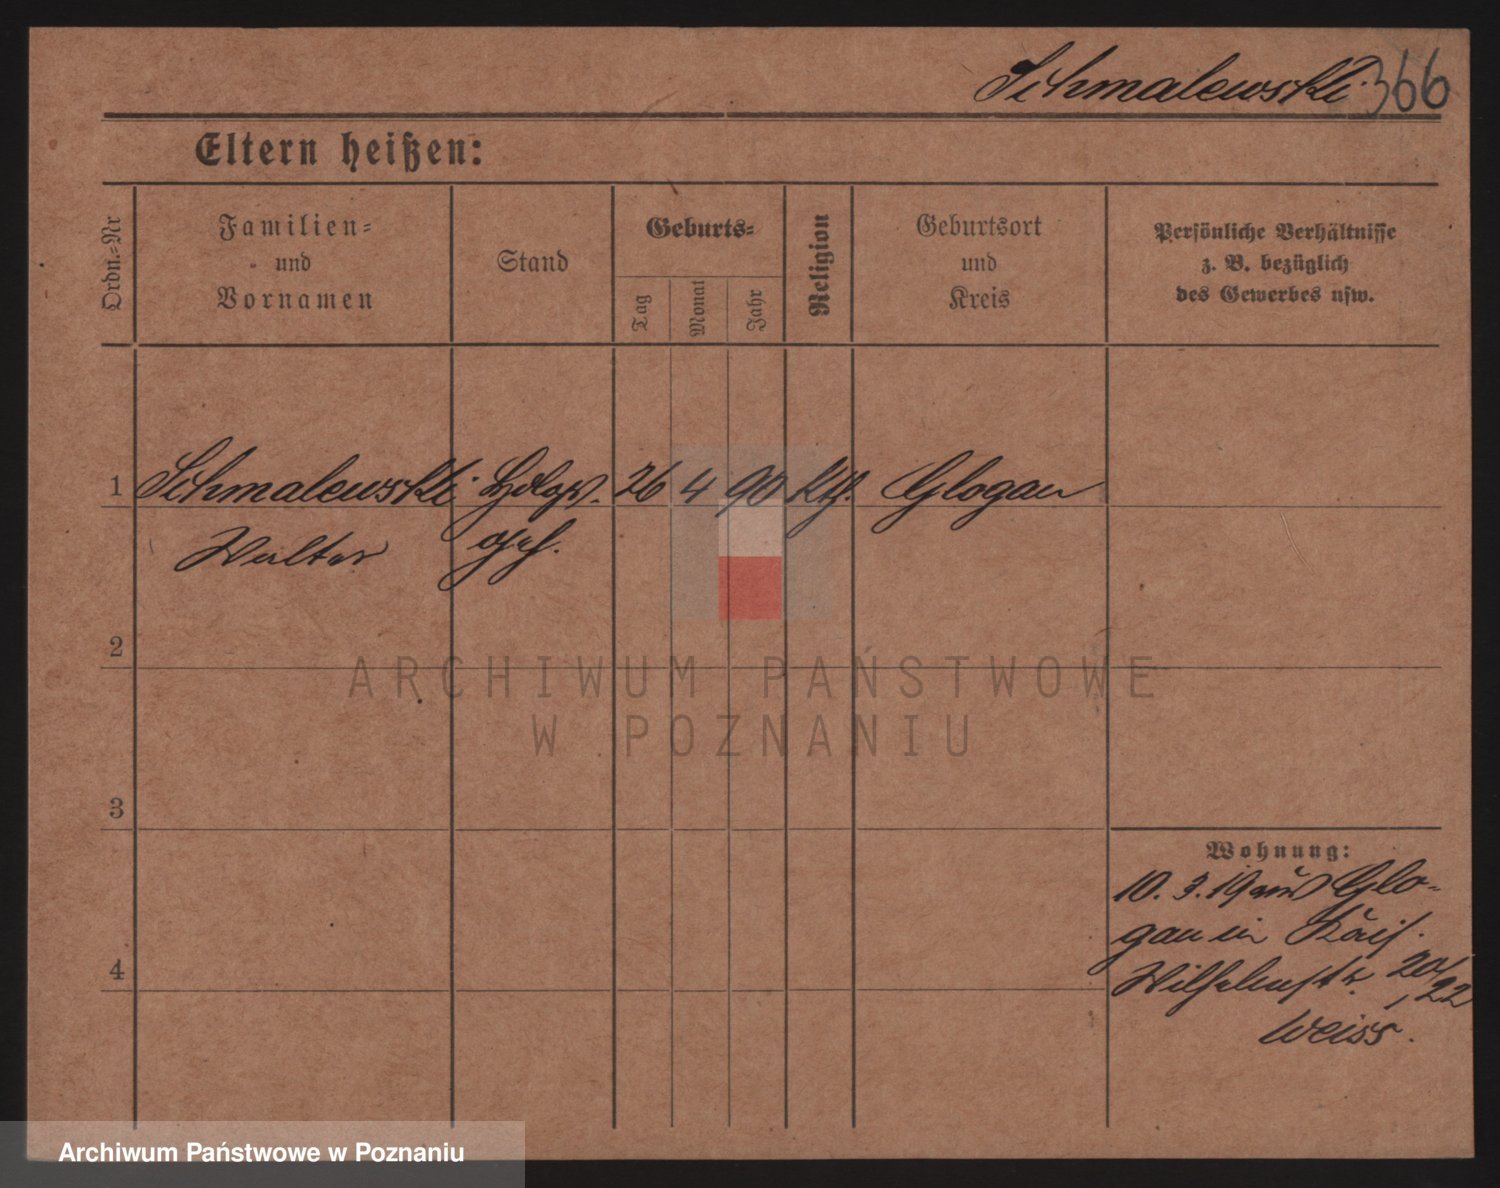 Schmalewski 366
Eltern heißen:
Ordn.-Nr
Familien-
und
Vornamen
Stand
Geburts-
Tag
Monat
Jahr
Religion
Geburtsort
und
Kreis
Persönliche Verhältnisse
z. B. bezüglich
des Gewerbes usw.
1 Schmalewski Hdlgs. 26 4 90 kth. Glogau
Walter Geh.
2
ARCHIWUM PAŃSTWOWE
W POZNANIU
3
Wohnung:
10.3.19 aus Glo-
gau in Kais.
4
Wilhelmstr. 20/22
Weiss.
Archiwum Państwowe w Poznaniu